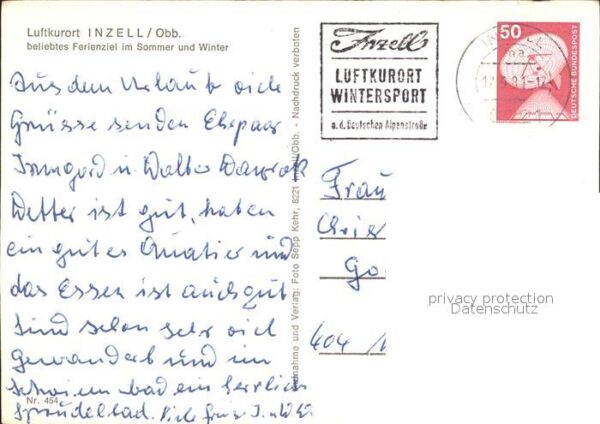 Luftkurort INZELL/Obb.
beliebtes Ferienziel im Sommer und Winter
Aus dem Urlaub viele
Grüsse senden Ehepaar
Irmgard u. Walter
Wetter ist gut, haben
ein gutes Quatier und
das Essen ist auch gut
Sind schon sehr viel
gewandert und im
Schwimmbad ein herrlich
Sprudelbad. Viele Grüsse I. u. W. W.
Nr. 454
Aufnahme und Verlag: Foto Sepp Kehr, 8221 Inzell/Obb. - Nachdruck verboten
Inzell
LUFTKURORT
WINTERSPORT
a. d. Deutschen Alpenstraße
INZELL
50
DEUTSCHE BUNDESPOST
Frau
Chris
Go
404
privacy protection
Datenschutz